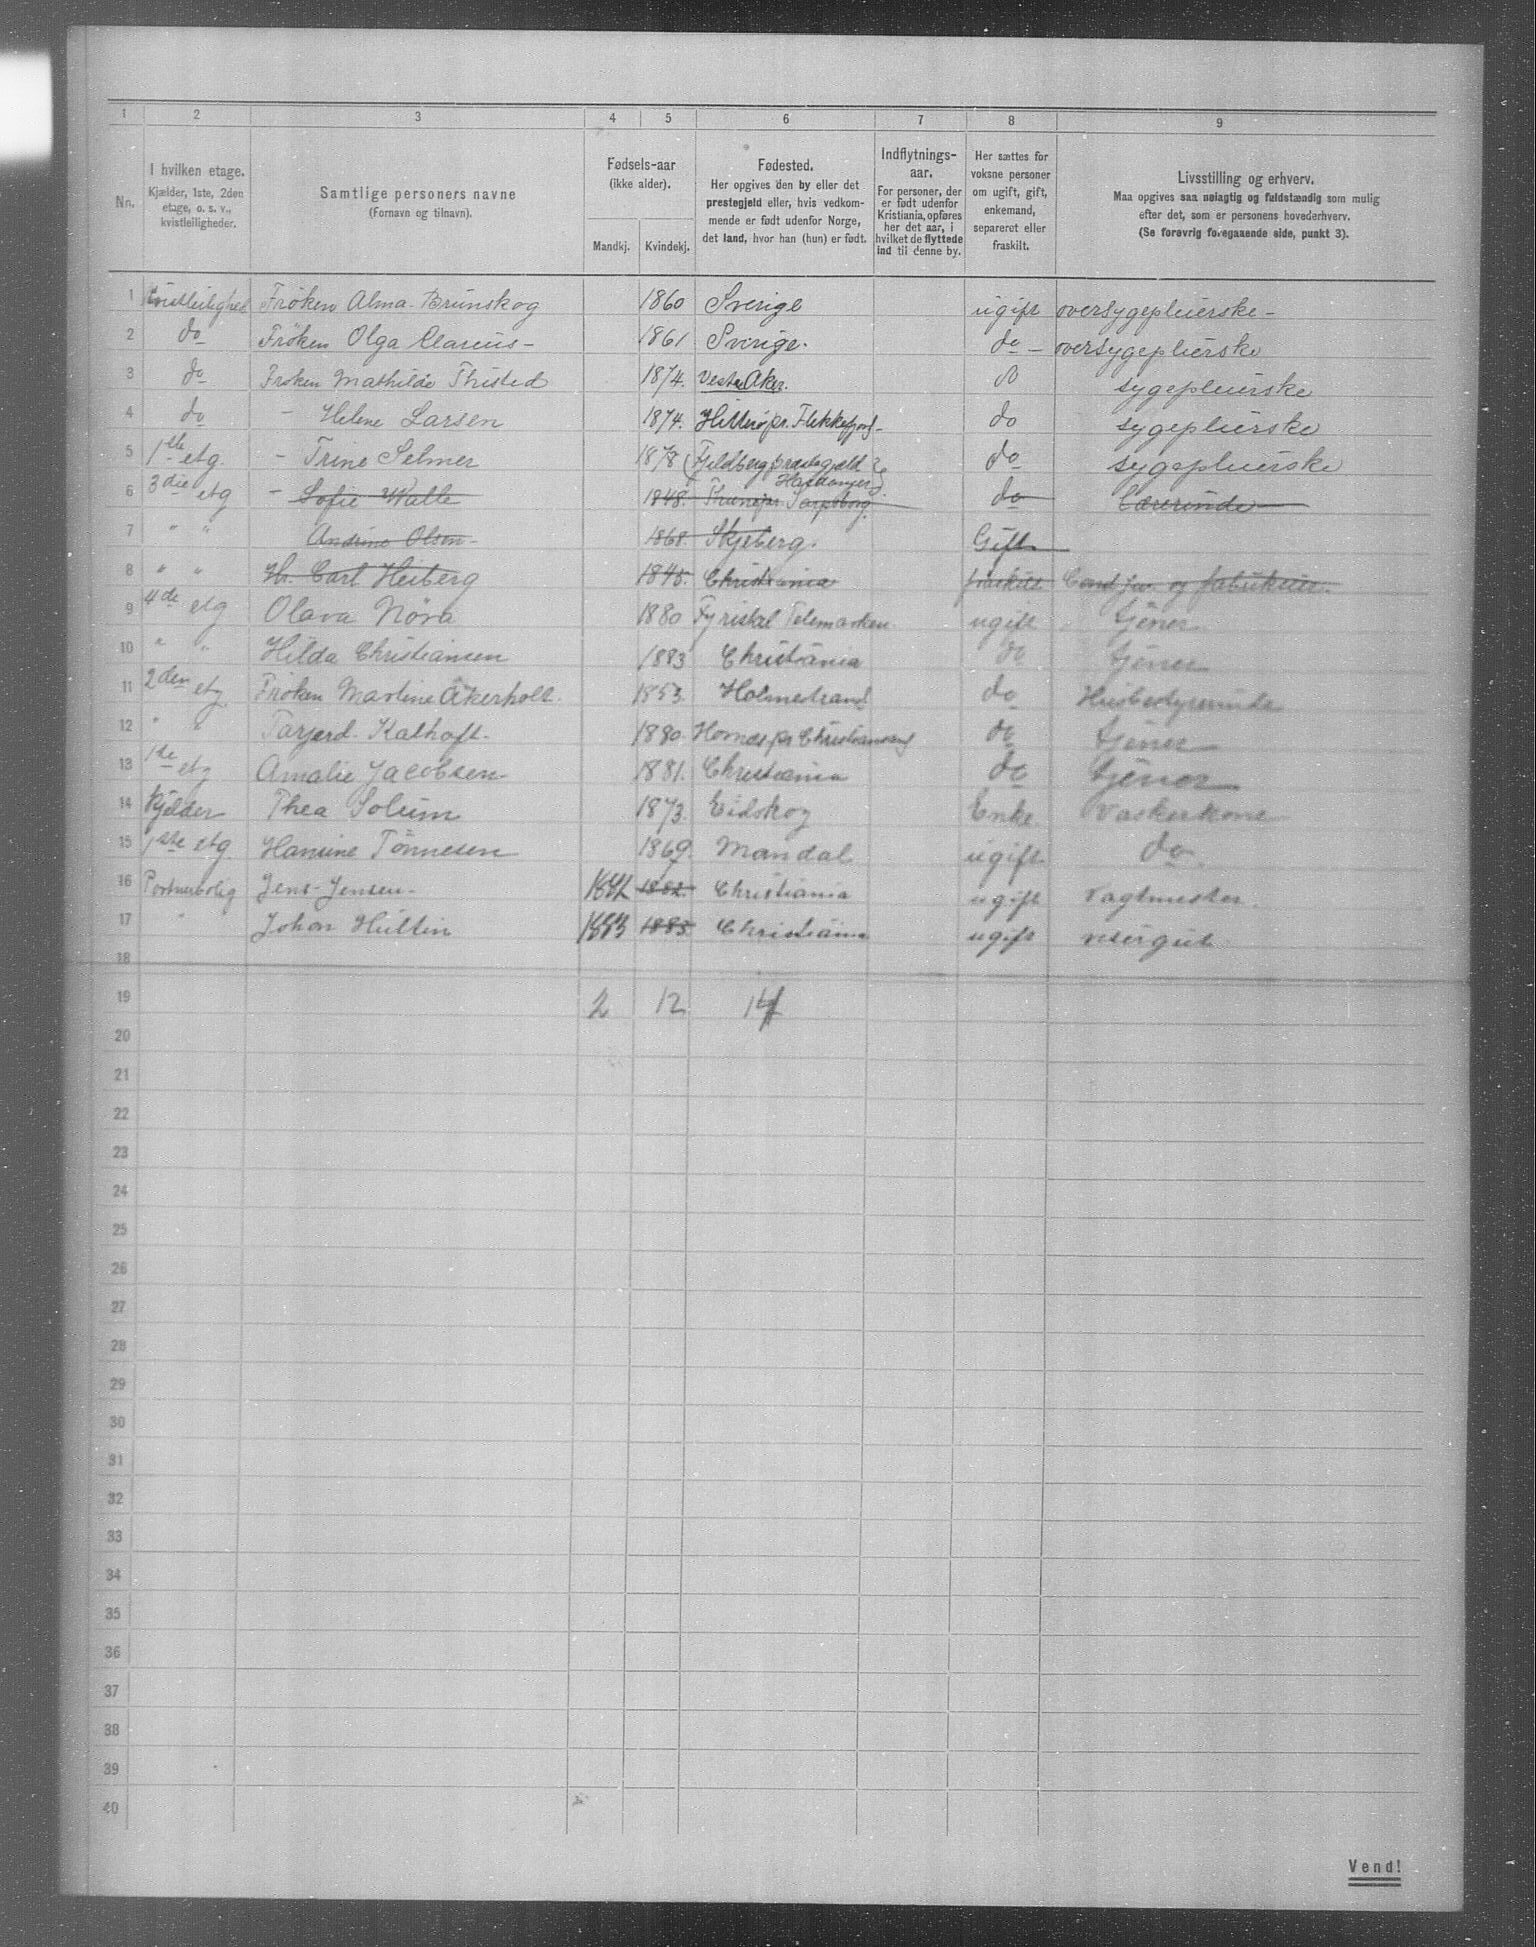 1 2 3 4 5 6 7 8 9
Nr. I hvilken etage. Kjælder, 1ste, 2den etage, o. s. v., kvistleiligheder. Samtlige personers navne (Fornavn og tilnavn). Fødsels-aar (ikke alder). Mandkj. Kvindekj. Fødested. Her opgives den by eller det prestegjeld eller, hvis vedkommende er født udenfor Norge, det land, hvor han (hun) er født. Indflytnings-aar. For personer, der er født udenfor Kristiania, opføres her det aar, i hvilket de flyttede ind til denne by. Her sættes for voksne personer om ugift, gift, enkemand, separeret eller fraskilt. Livsstilling og erhverv. Maa opgives saa nøiagtig og fuldstændig som mulig efter det, som er personens hovederhverv. (Se forøvrig foregaaende side, punkt 3).
1 Kvistleilighed Frøken Alma Brunskog 1860 Sverige ugift oversygepleierske -
2 do Frøken Olga Clareus - 1861 Sverige. do - oversygepleierske
3 do Frøken Mathilde Thisted 1874. Vestre Aker. do sygepleierske
4 do - Helene Larsen 1874. Hitterø pr. Flekkefjord - do sygepleierske
5 1ste etg. - Trine Selmer 1878 (Fjeldberg præstegjæld Hardanger) do sygepleierske
6 3die etg - Sofie Walle 1848. Thune pr. Sarpsborg. do Lærerinde
7 " " Andrine Olsen - 1868 Skjeberg. Gift
8 " " Hr. Carl Heiberg 1845. Christiania fraskilt Cand. jur. og fabrikeier.
9 4de etg Olava Nöra 1880 Fyrisdal Telemarken ugift tjener
10 " " Hilda Christiansen 1883 Christiania do tjener
11 2den etg. Frøken Martine Akerholt. 1853. Holmestrand do Husbestyrerinde
12 " " Tarjerd Kalhoft. 1880 Hornæs pr Christiansand do tjener
13 1ste etg Amalie Jacobsen 1881. Christiania do tjener
14 Kjelder Thea Solum 1873. Eidskog Enke Vaskerkone
15 1ste etg. Hanine Tönnesen 1869. Mandal ugift do.
16 Portnerbolig Jens Jensen - 1882 Christiania ugift Vagtmester.
17 " Johan Hultin 1883 1883 Christiania ugift visergut
18
19 2 12 14
20
21
22
23
24
25
26
27
28
29
30
31
32
33
34
35
36
37
38
39
40
Vend!